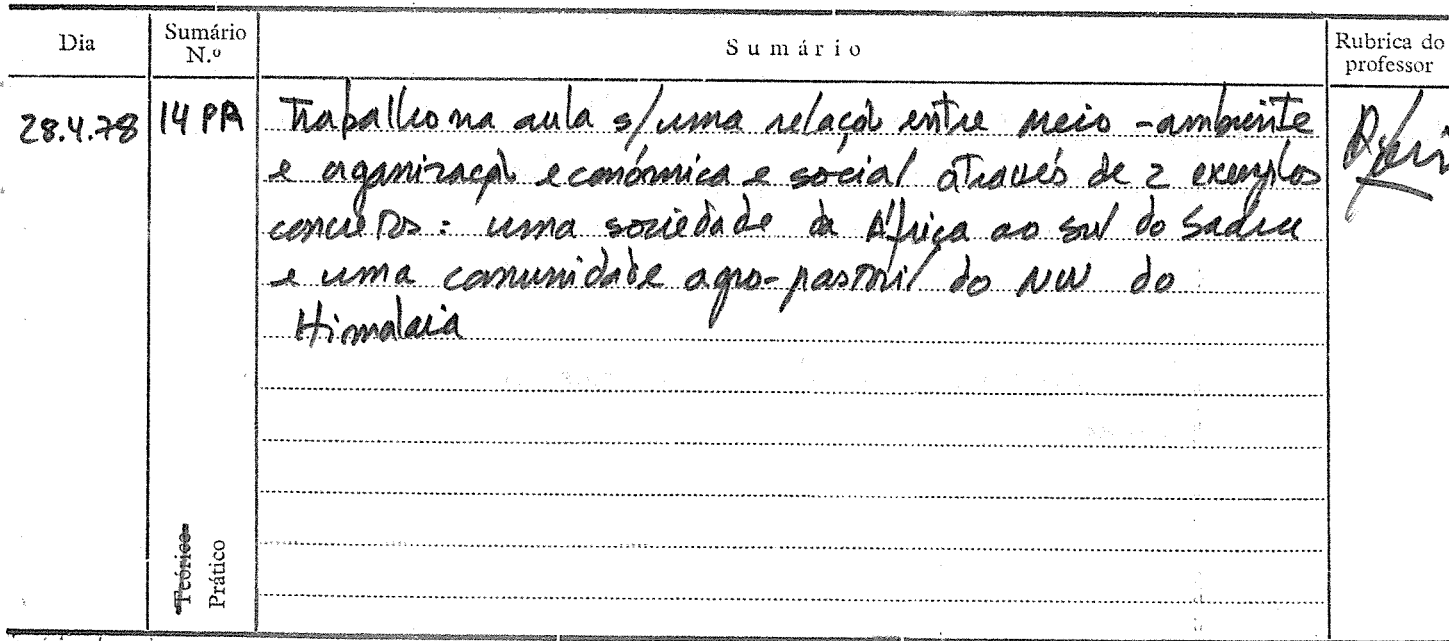 Dia
Sumário N.º
Sumário
Rubrica do professor
28.4.78
14 PR
Trabalho na aula s/ uma relação entre meio-ambiente
e organização económica e social através de 2 exemplos
concretos: uma sociedade da África ao sul do Saara
e uma comunidade agro-pastoril do NW do
Himalaia
Teórico
Prático